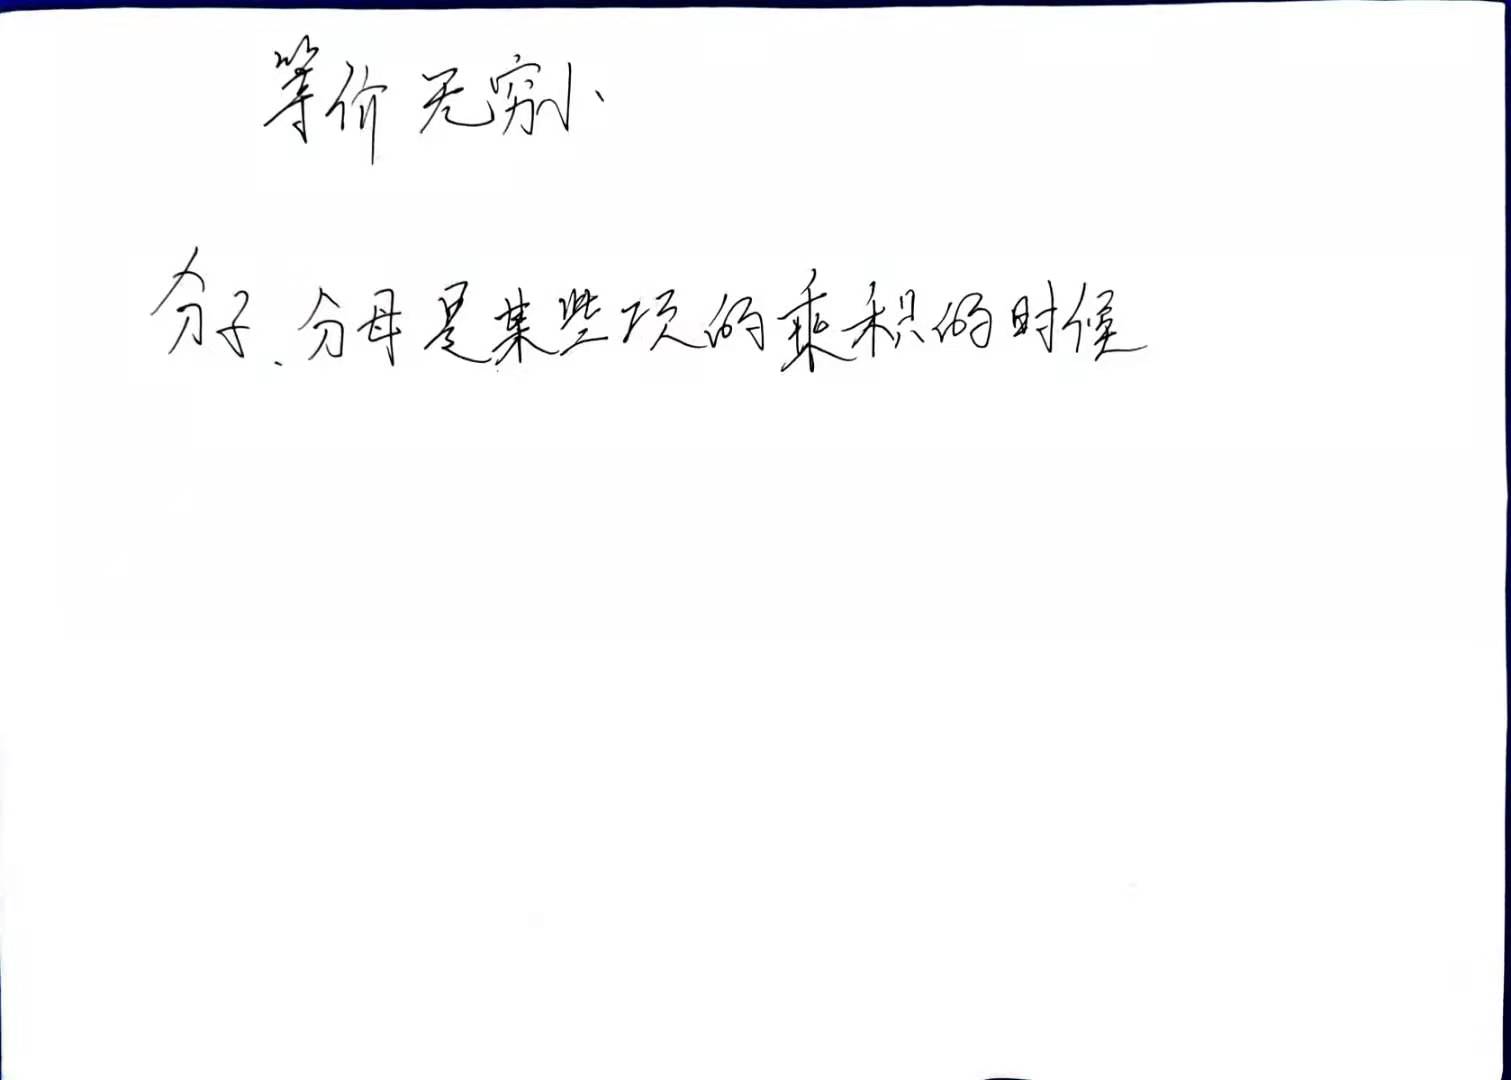 等价无穷小
分子、分母是某些项的乘积的时候